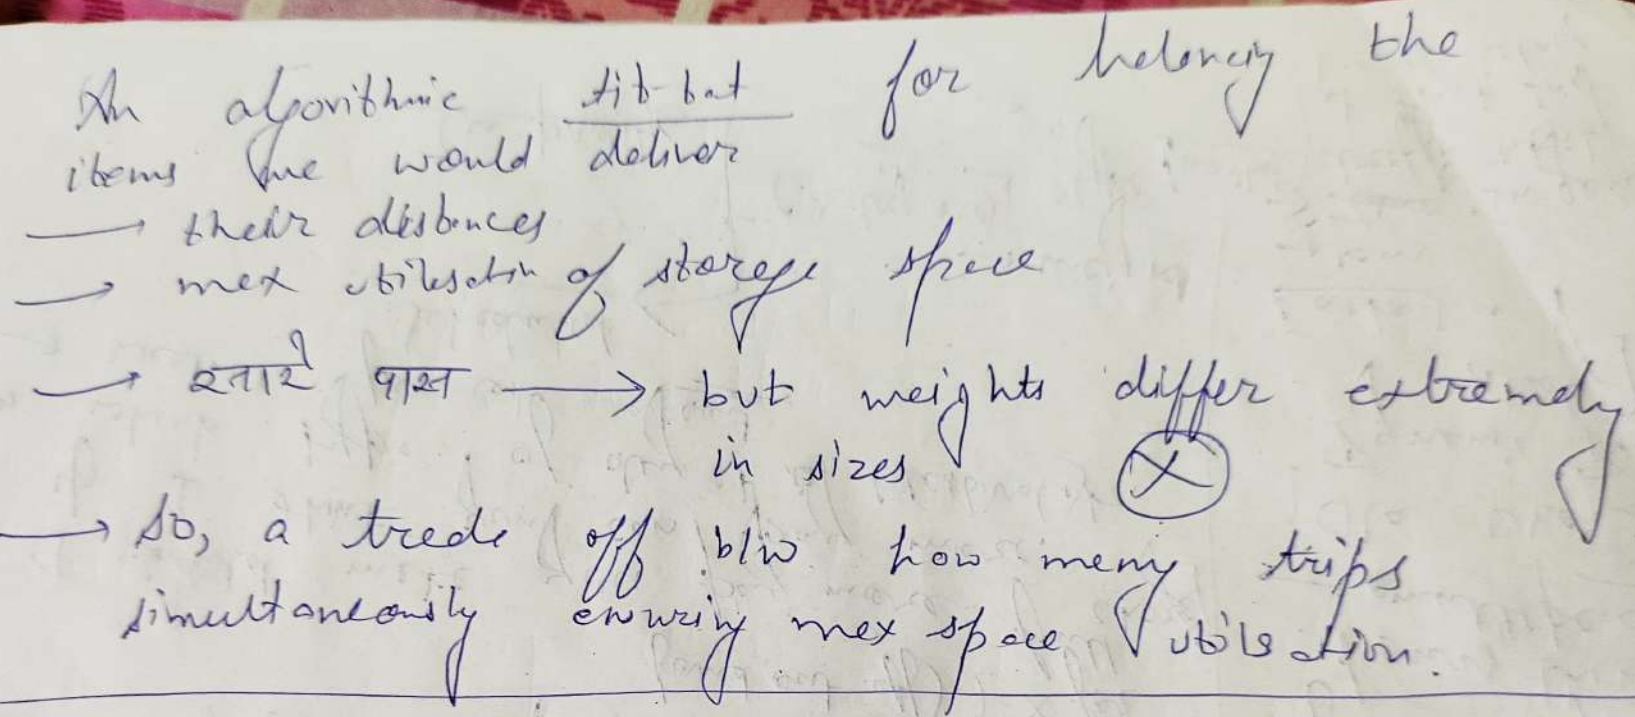 An algorithmic tit-bat for balancing the
items we would deliver
→ their distances
→ max utilisation of storage space
→ सारे पास → but weights differ extremely
in sizes X
→ So, a trade off b/w how many trips
simultaneously ensuring max space utilisation.